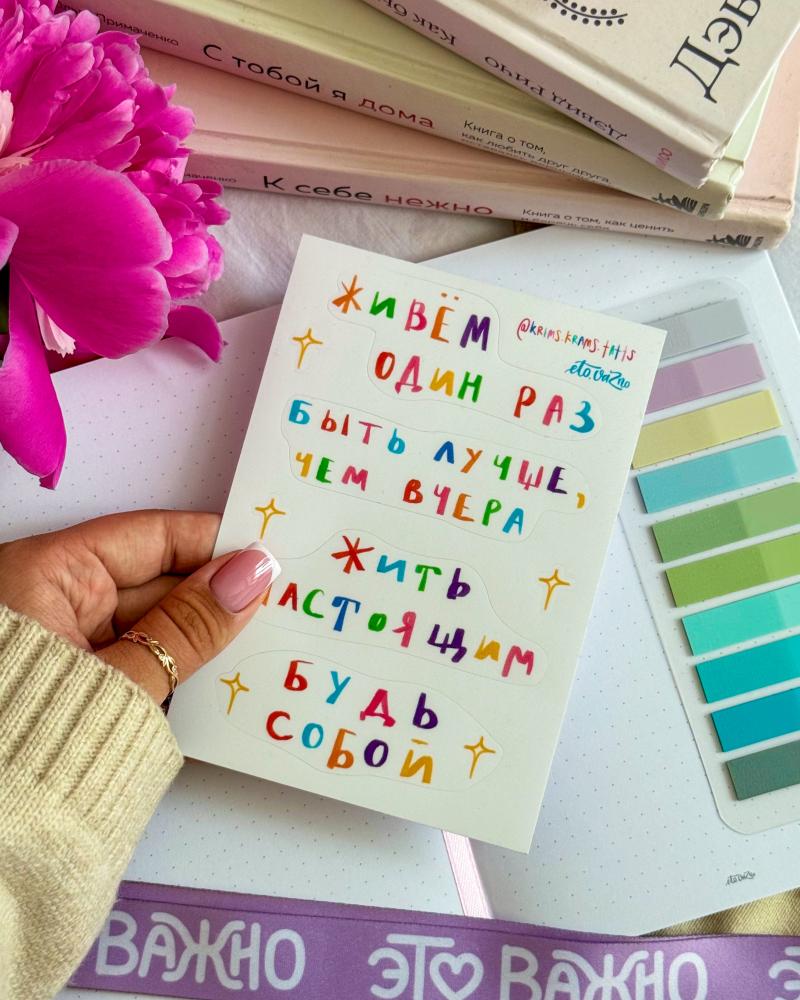 Примаченко
С тобой я дома
Книга о том,
как любить друг друга,
К себе нежно
Книга о том, как ценить
и беречь себя
Дэвид Ричо
Как
ЖИВЁМ
ОДИН РАЗ
@KRIMS.KRAMS.TATTS
eto.vaZno
БЫТЬ ЛУЧШЕ,
ЧЕМ ВЧЕРА
ЖИТЬ
НАСТОЯЩИМ
БУДЬ
СОБОЙ
eto.vaZno
ВАЖНО
ЭТО ВАЖНО